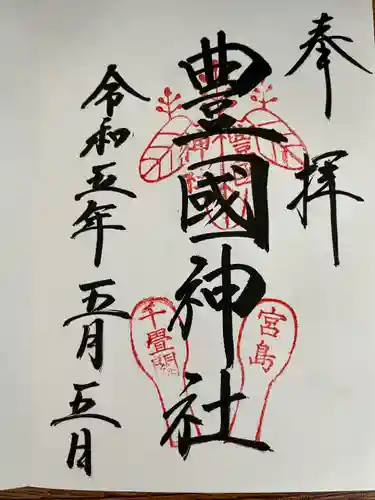 奉拝
豊國神社
令和五年五月五日
宮島
千畳閣